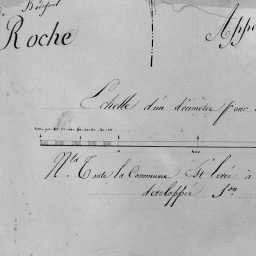 Roche
App
Echelle d'un décimètre pour
Nta Toute la Commune St levée à
développée Son